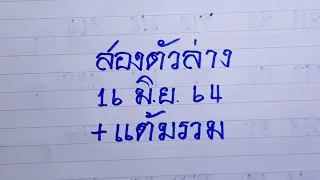 สองตัวล่าง
16 มิ.ย. 64
+แต้มรวม